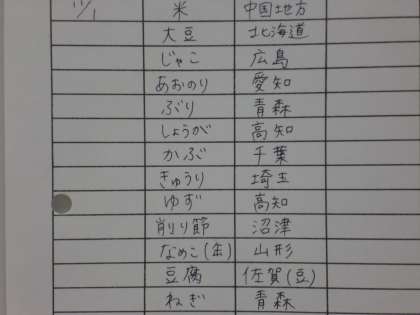 11/1 米 中国地方
大豆 北海道
じゃこ 広島
あおのり 愛知
ぶり 青森
しょうが 高知
かぶ 千葉
きゅうり 埼玉
ゆず 高知
削り節 沼津
なめこ(缶) 山形
豆腐 佐賀(豆)
ねぎ 青森